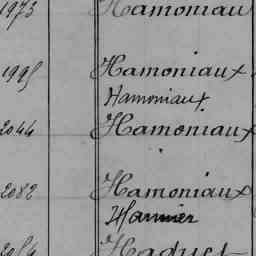 1973 Hamoniau
1995 Hamoniaux
Hamoniaux
2044 Hamoniaux
2082 Hamoniaux
Harmier
Haduet